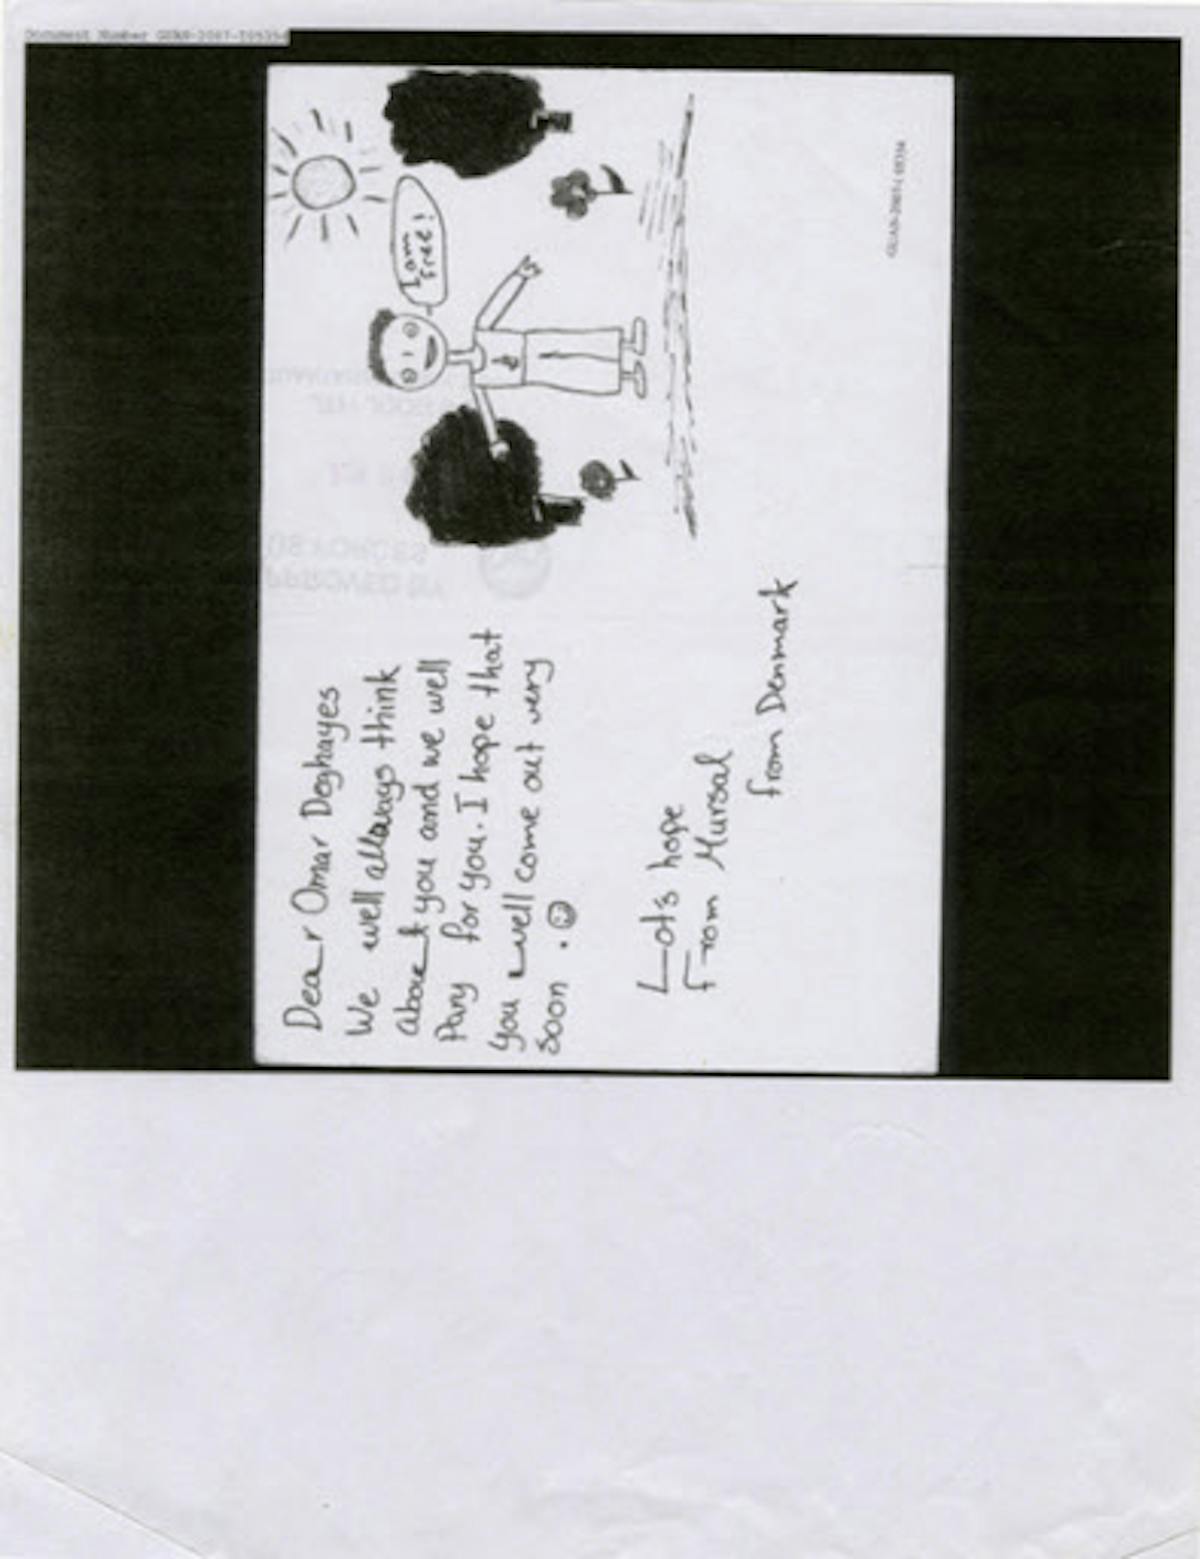 Document Number
I am
free!
Dear Omar Deghayes
We well allways think
about you and we well
Pary for you. I hope that
you well come out very
soon. ☺
Lots hope
From Mursal
from Denmark